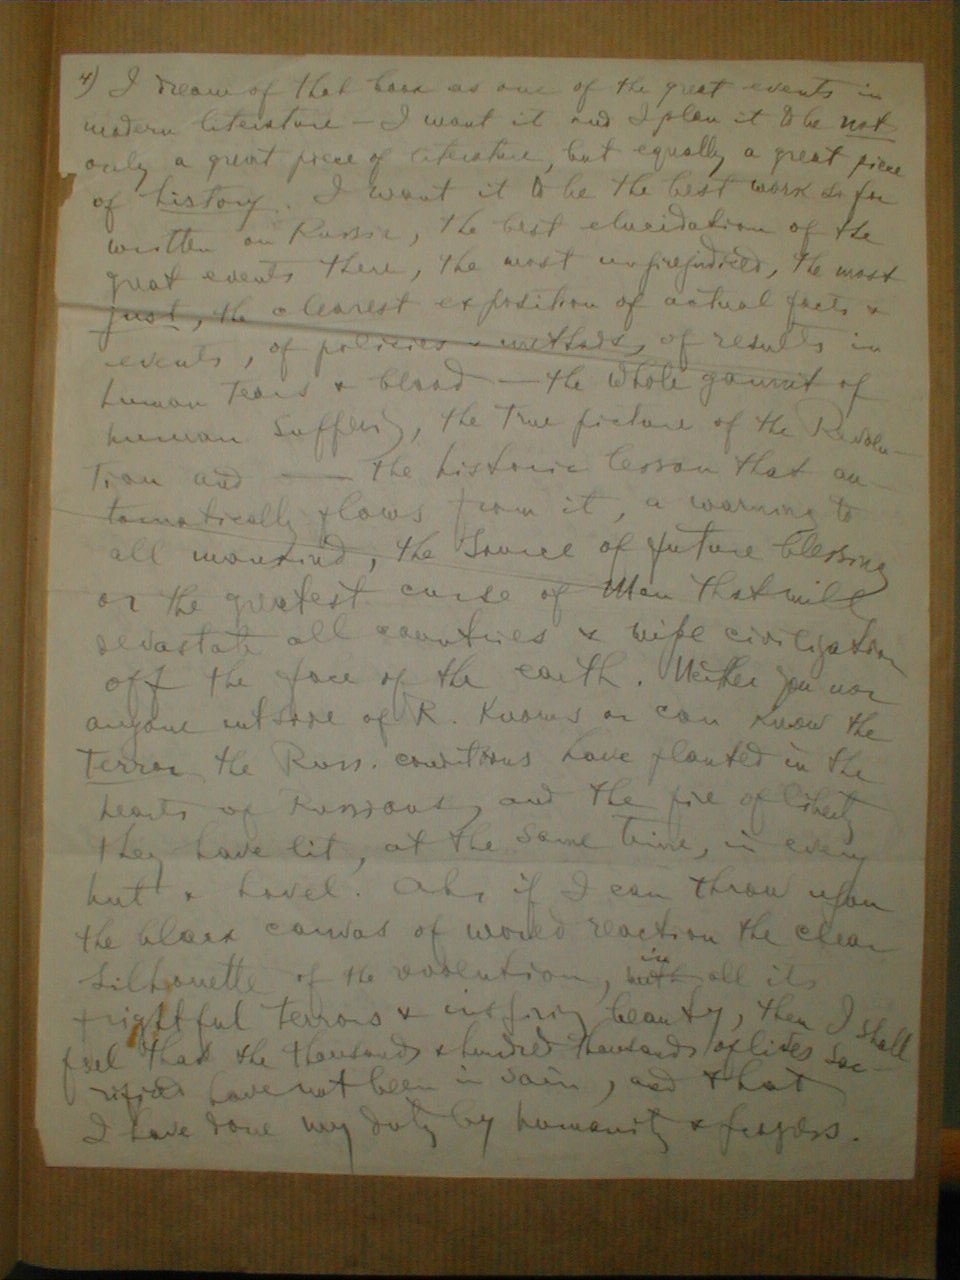 4) I dream of that book as one of the great events in
modern literature — I want it and I plan it to be not
only a great piece of literature, but equally a great piece
of history. I want it to be the best work so far
written on Russia, the best elucidation of the
great events there, the most unprejudiced, the most
just, the clearest exposition of actual facts &
events, of policies & methods, of results in
human tears & blood — the whole gamut of
human suffering, the true picture of the Revolu-
tion and —— the historic lesson that au-
tomatically flows from it, a warning to
all mankind, the Source of future blessing
or the greatest curse of Man that will
devastate all countries & wipe civilization
off the face of the earth. Neither you nor
anyone outside of R. knows or can know the
Terror the Russ. conditions have planted in the
hearts of Russians, and the fire of liberty
they have lit, at the same time, in every
hut & hovel. Ah, if I can throw upon
the black canvas of world reaction the clear
silhouette of the revolution, in all its
frightful terrors & inspiring beauty, then I shall
feel that the thousands & hundred thousands of lives sac-
rificed have not been in vain, and that
I have done my duty by humanity & progress.